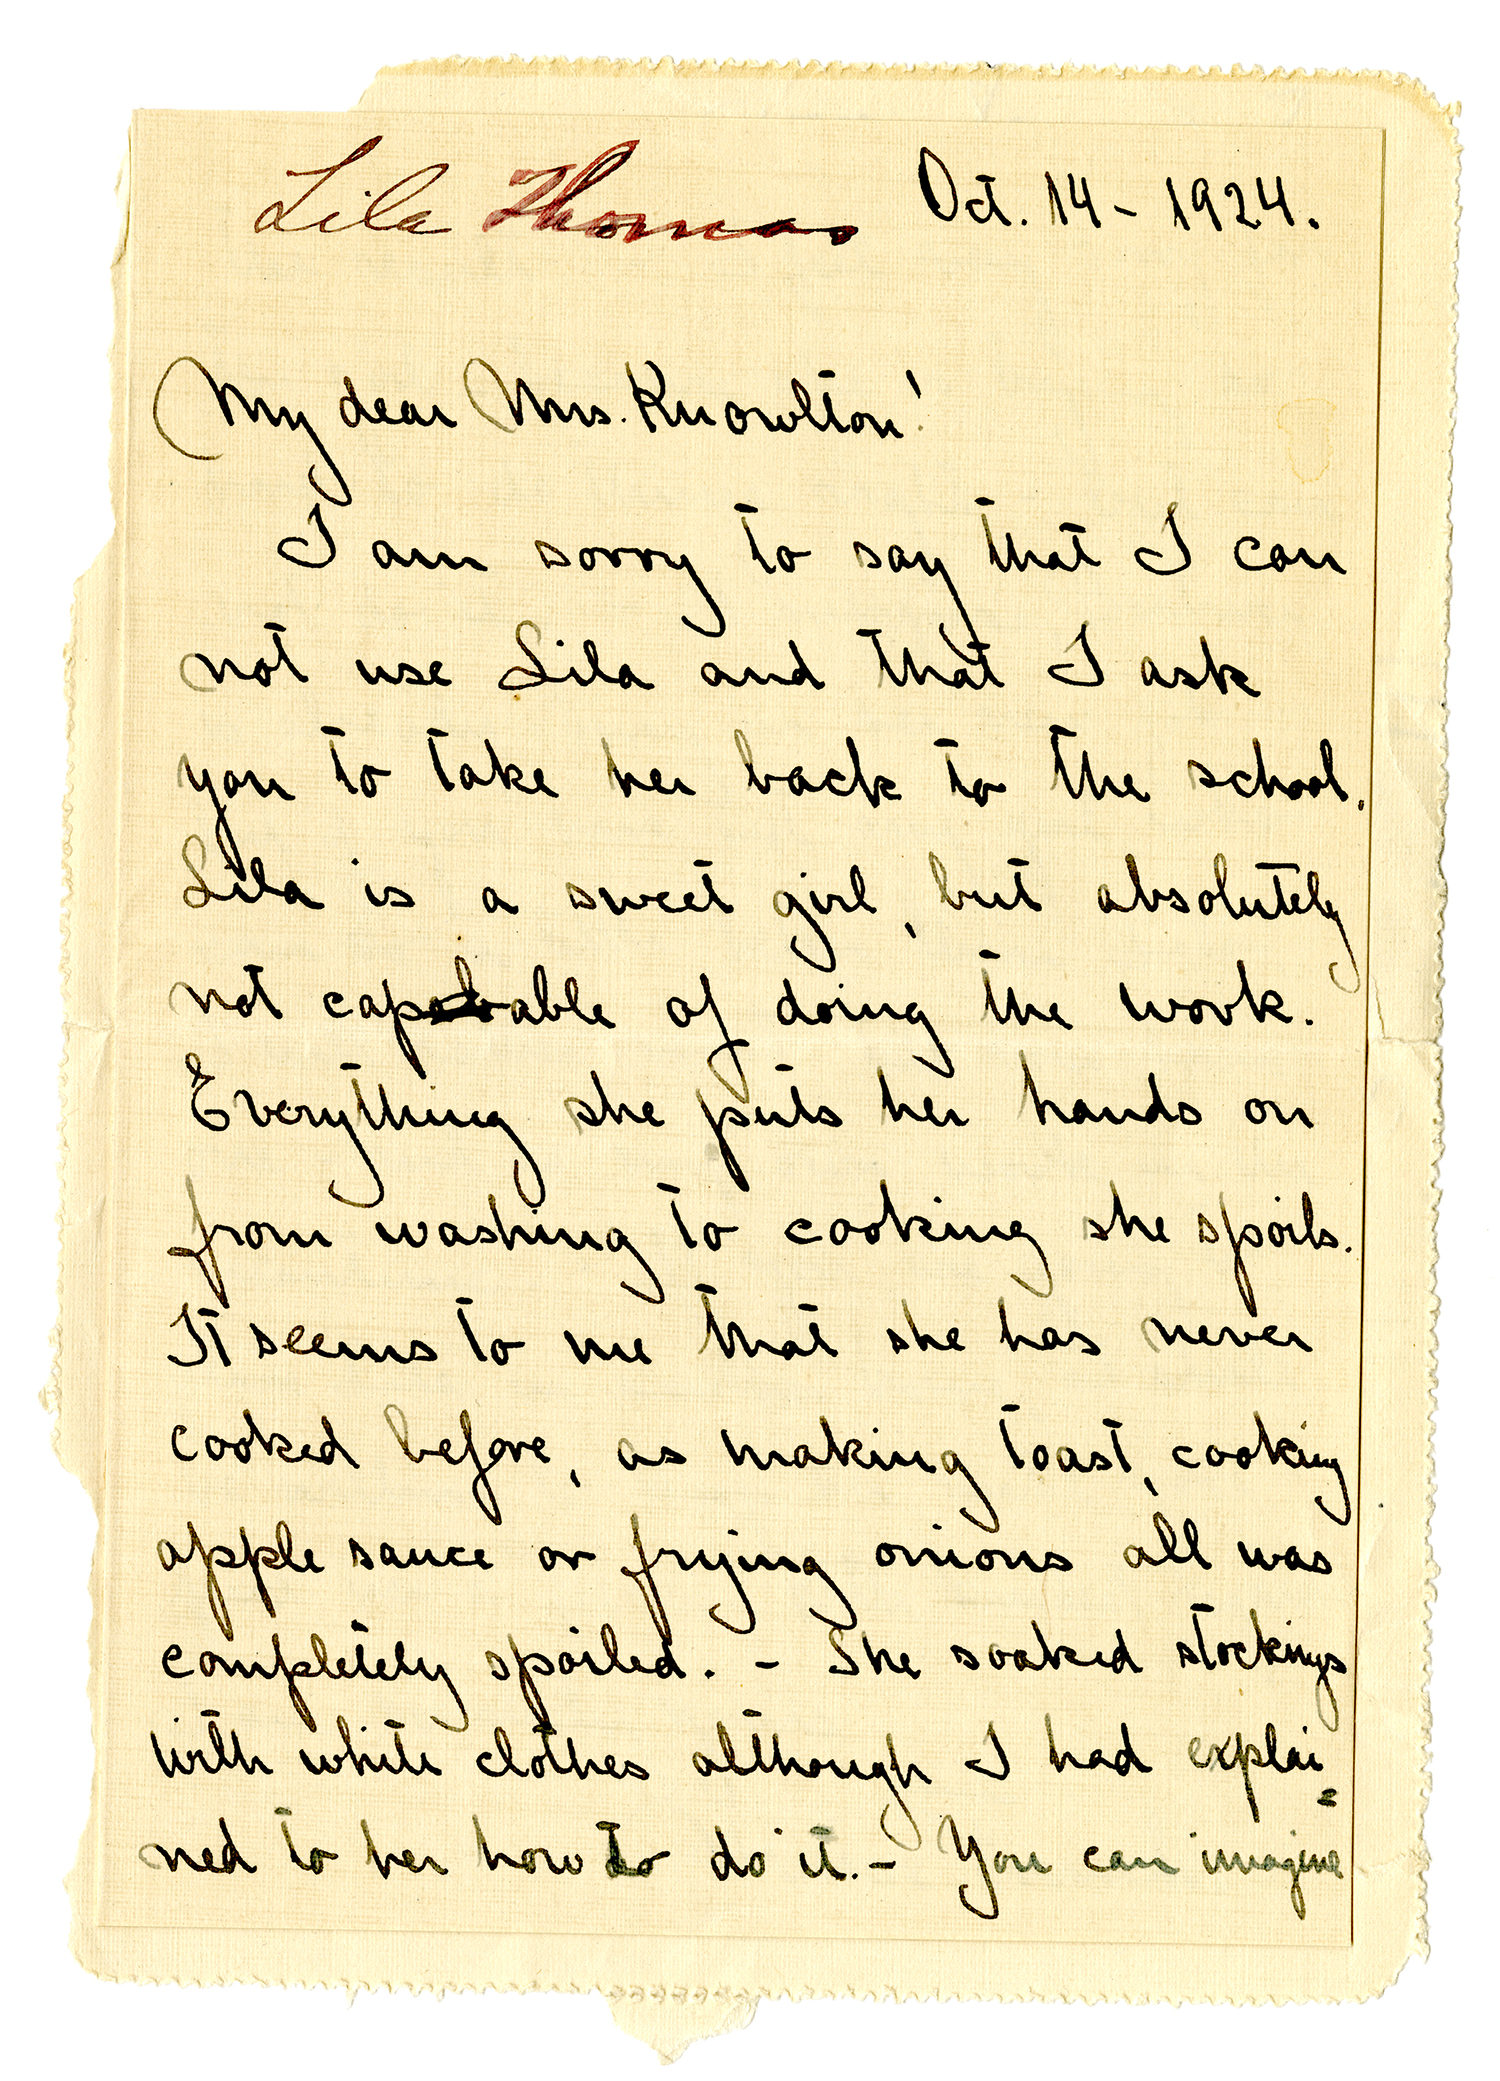 Lila Thomas Oct. 14 - 1924.
My dear Mrs. Knowlton!
I am sorry to say that I can
not use Lila and that I ask
you to take her back to the school.
Lila is a sweet girl, but absolutely
not capable of doing the work.
Everything she puts her hands on
from washing to cooking she spoils.
It seems to me that she has never
cooked before, as making toast, cooking
apple sauce or frying onions all was
completely spoiled. - She soaked stockings
with white clothes although I had explai=
ned to her how to do it. - You can imagine